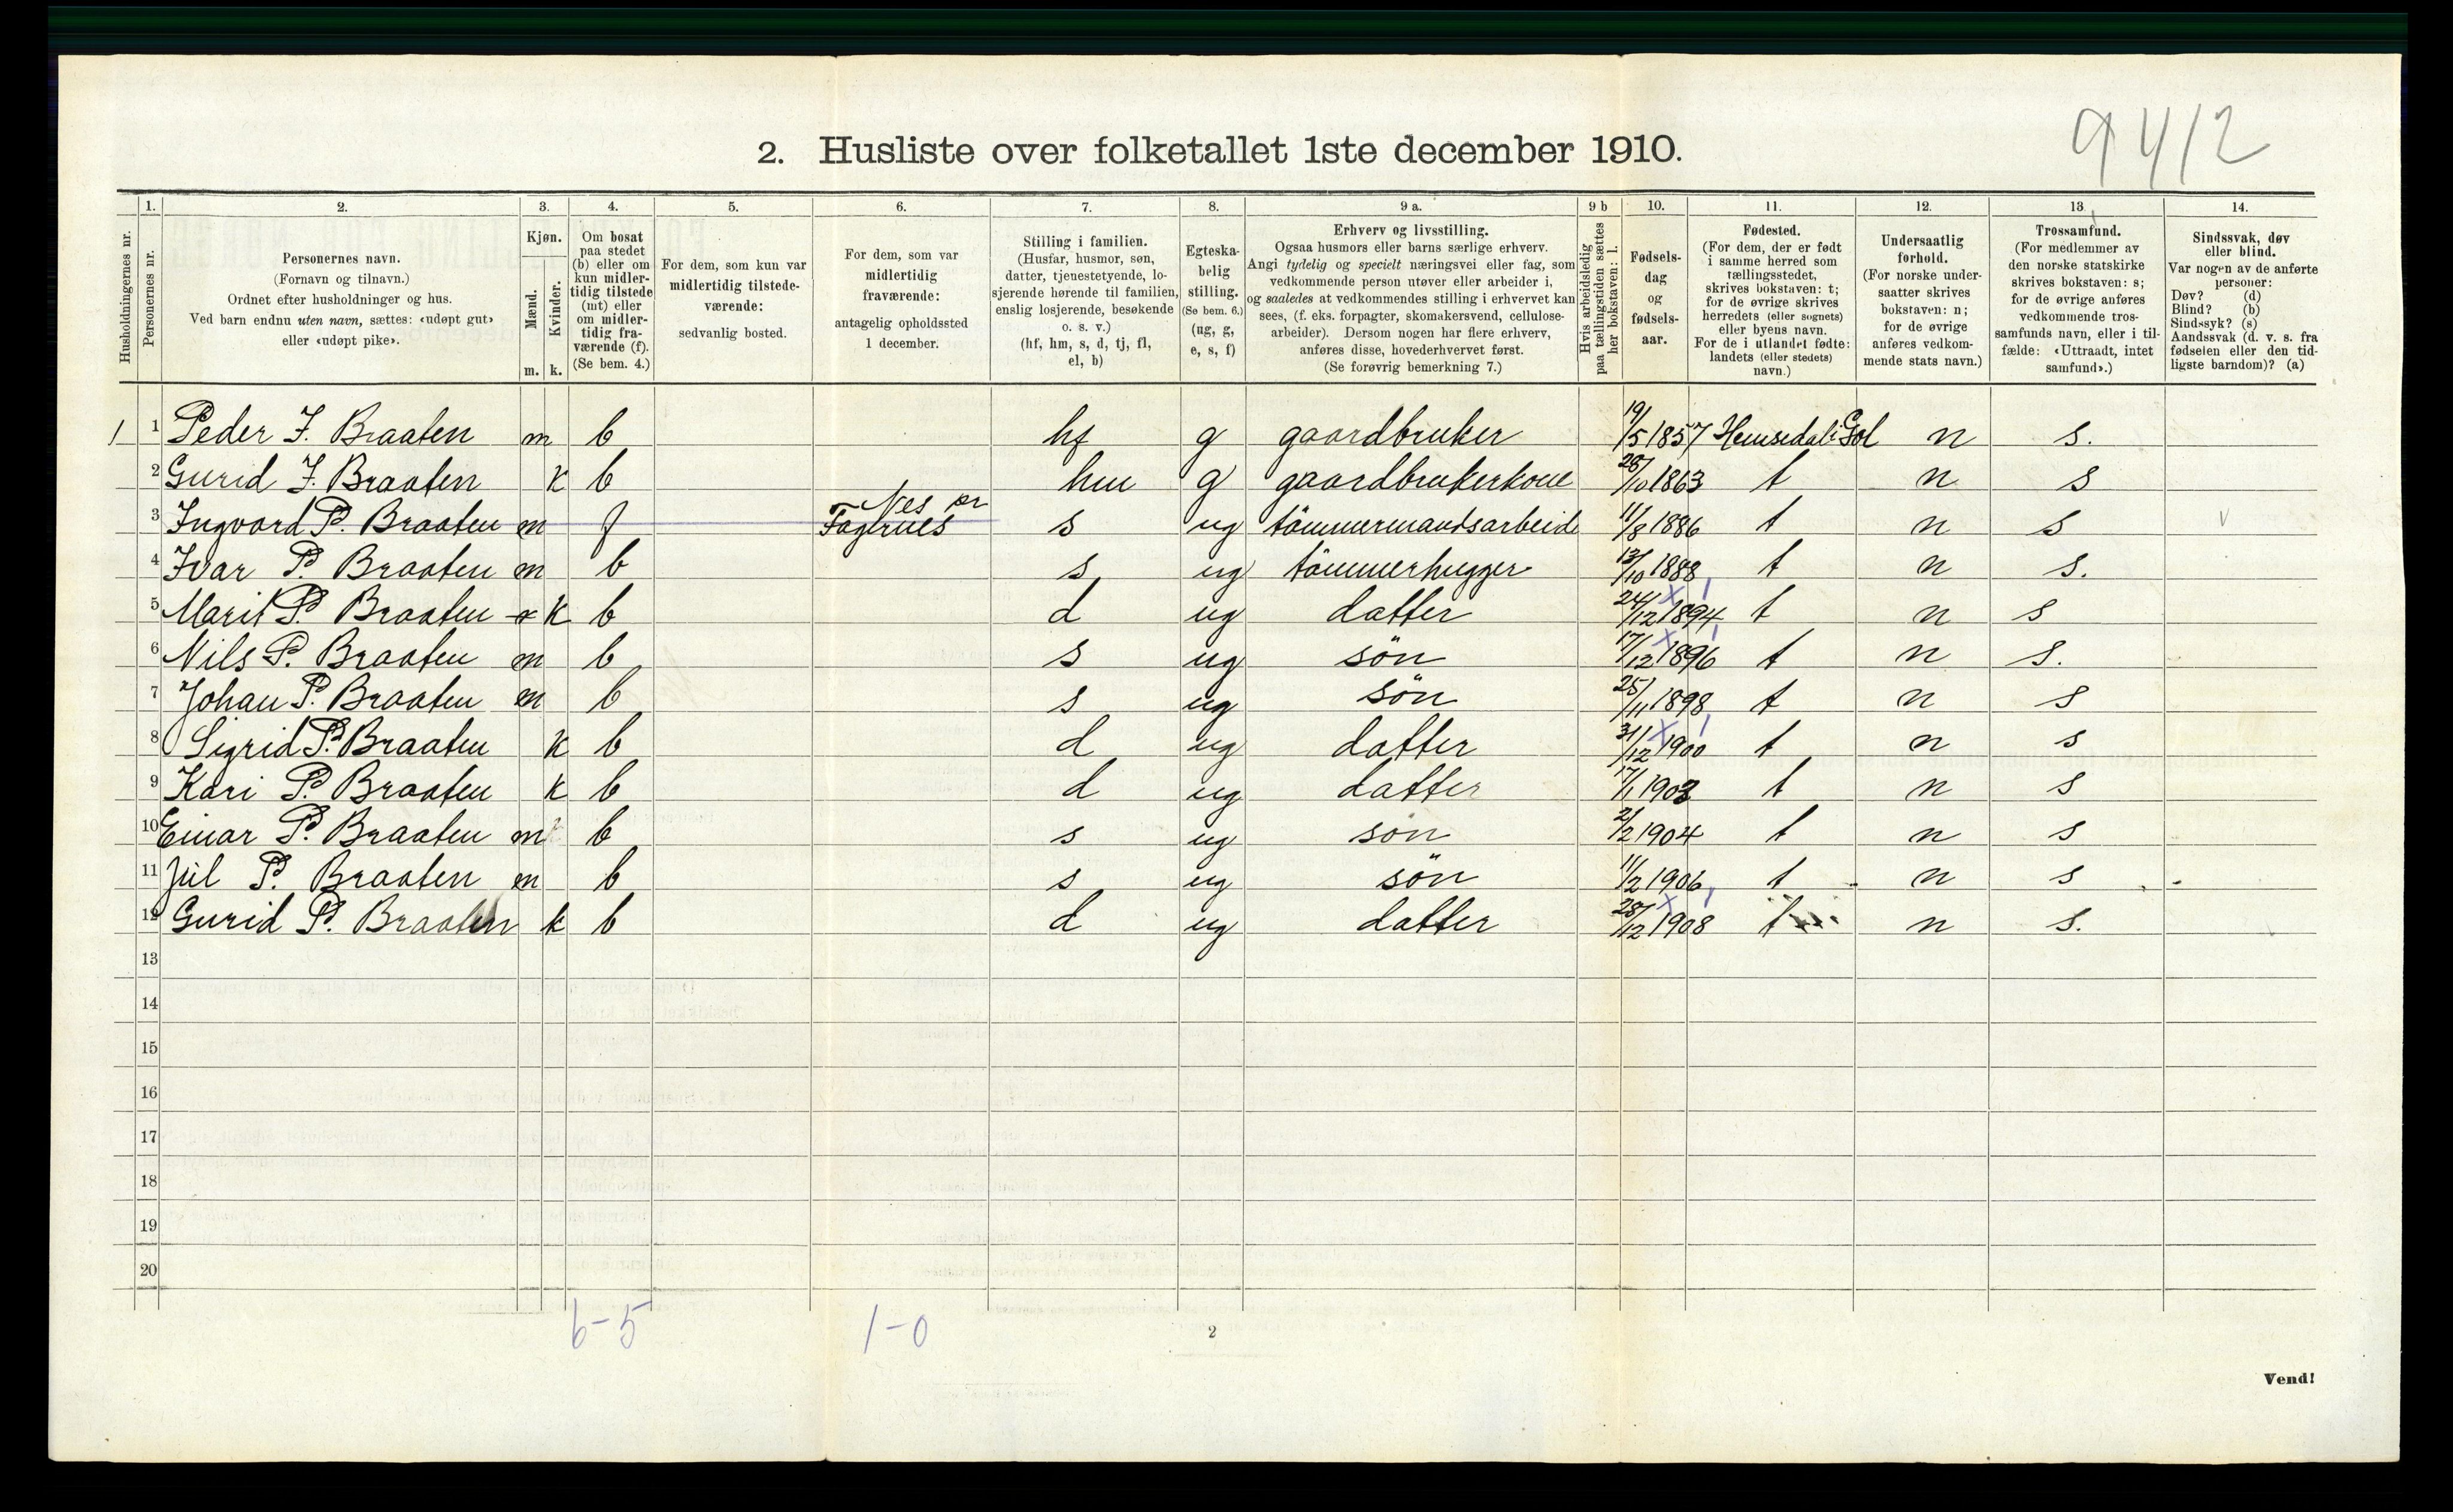 9412
2. Husliste over folketallet 1ste december 1910.
Husholdningernes nr.
1.
Personernes nr.
2.
Personernes navn.
(Fornavn og tilnavn.)
Ordnet efter husholdninger og hus.
Ved barn endnu uten navn, sættes: «udøpt gut»
eller «udøpt pike».
3.
Kjøn.
Mænd.
Kvinder.
m. k.
4.
Om bosat
paa stedet
(b) eller om
kun midler-
tidig tilstede
(mt) eller
om midler-
tidig fra-
værende (f).
(Se bem. 4.)
5.
For dem, som kun var
midlertidig tilstede-
værende:
sedvanlig bosted.
6.
For dem, som var
midlertidig
fraværende:
antagelig opholdssted
1 december.
7.
Stilling i familien.
(Husfar, husmor, søn,
datter, tjenestetyende, lo-
sjerende hørende til familien,
enslig losjerende, besøkende
o. s. v.)
(hf, hm, s, d, tj, fl,
el, b)
8.
Egteska-
belig
stilling.
(Se bem. 6.)
(ug, g,
e, s, f)
9 a.
Erhverv og livsstilling.
Ogsaa husmors eller barns særlige erhverv.
Angi tydelig og specielt næringsvei eller fag, som
vedkommende person utøver eller arbeider i,
og saaledes at vedkommendes stilling i erhvervet kan
sees, (f. eks. forpagter, skomakersvend, cellulose-
arbeider). Dersom nogen har flere erhverv,
anføres disse, hovederhvervet først.
(Se forøvrig bemerkning 7.)
9 b
Hvis arbeidsledig
paa tællingstiden sættes
her bokstaven: l.
10.
Fødsels-
dag
og
fødsels-
aar.
11.
Fødested.
(For dem, der er født
i samme herred som
tællingsstedet,
skrives bokstaven: t;
for de øvrige skrives
herredets (eller sognets)
eller byens navn.
For de i utlandet fødte:
landets (eller stedets)
navn.)
12.
Undersaatlig
forhold.
(For norske under-
saatter skrives
bokstaven: n;
for de øvrige
anføres vedkom-
mende stats navn.)
13
Trossamfund.
(For medlemmer av
den norske statskirke
skrives bokstaven: s;
for de øvrige anføres
vedkommende tros-
samfunds navn, eller i til-
fælde: «Uttraadt, intet
samfund».)
14.
Sindssvak, døv
eller blind.
Var nogen av de anførte
personer:
Døv? (d)
Blind? (b)
Sindssyk? (s)
Aandssvak (d. v. s. fra
fødselen eller den tid-
ligste barndom)? (a)
1 1 Peder J. Braaten m b hf g gaardbruker 19/5 1857 Hemsedal i Gol n s.
2 Gurid J. Braaten k b hm g gaardbrukerkone 28/10 1863 t n s
3 Ingvard P. Braaten m f Nes pr Fagernes s ug tömmermandsarbeide 11/8 1886 t n s
4 Ivar P. Braaten m b s ug tömmerhugger 13/10 1888 t n s.
5 Marit P. Braaten k b d ug datter 24/12 1894 t n s
6 Nils P. Braaten m b s ug sön 17/12 1896 t n s.
7 Johan P. Braaten m b s ug sön 25/11 1898 t n s
8 Sigrid P. Braaten k b d ug datter 31/12 1900 t n s
9 Kari P. Braaten k b d ug datter 17/1 1903 t n s
10 Einar P. Braaten m b s ug son 2/2 1904 t n s
11 Jul P. Braaten m b s ug sön 11/2 1906 t n s
12 Gurid P. Braaten k b d ug datter 28/12 1908 t n s.
13
14
15
16
17
18
19
20
6-5 1-0
2
Vend!